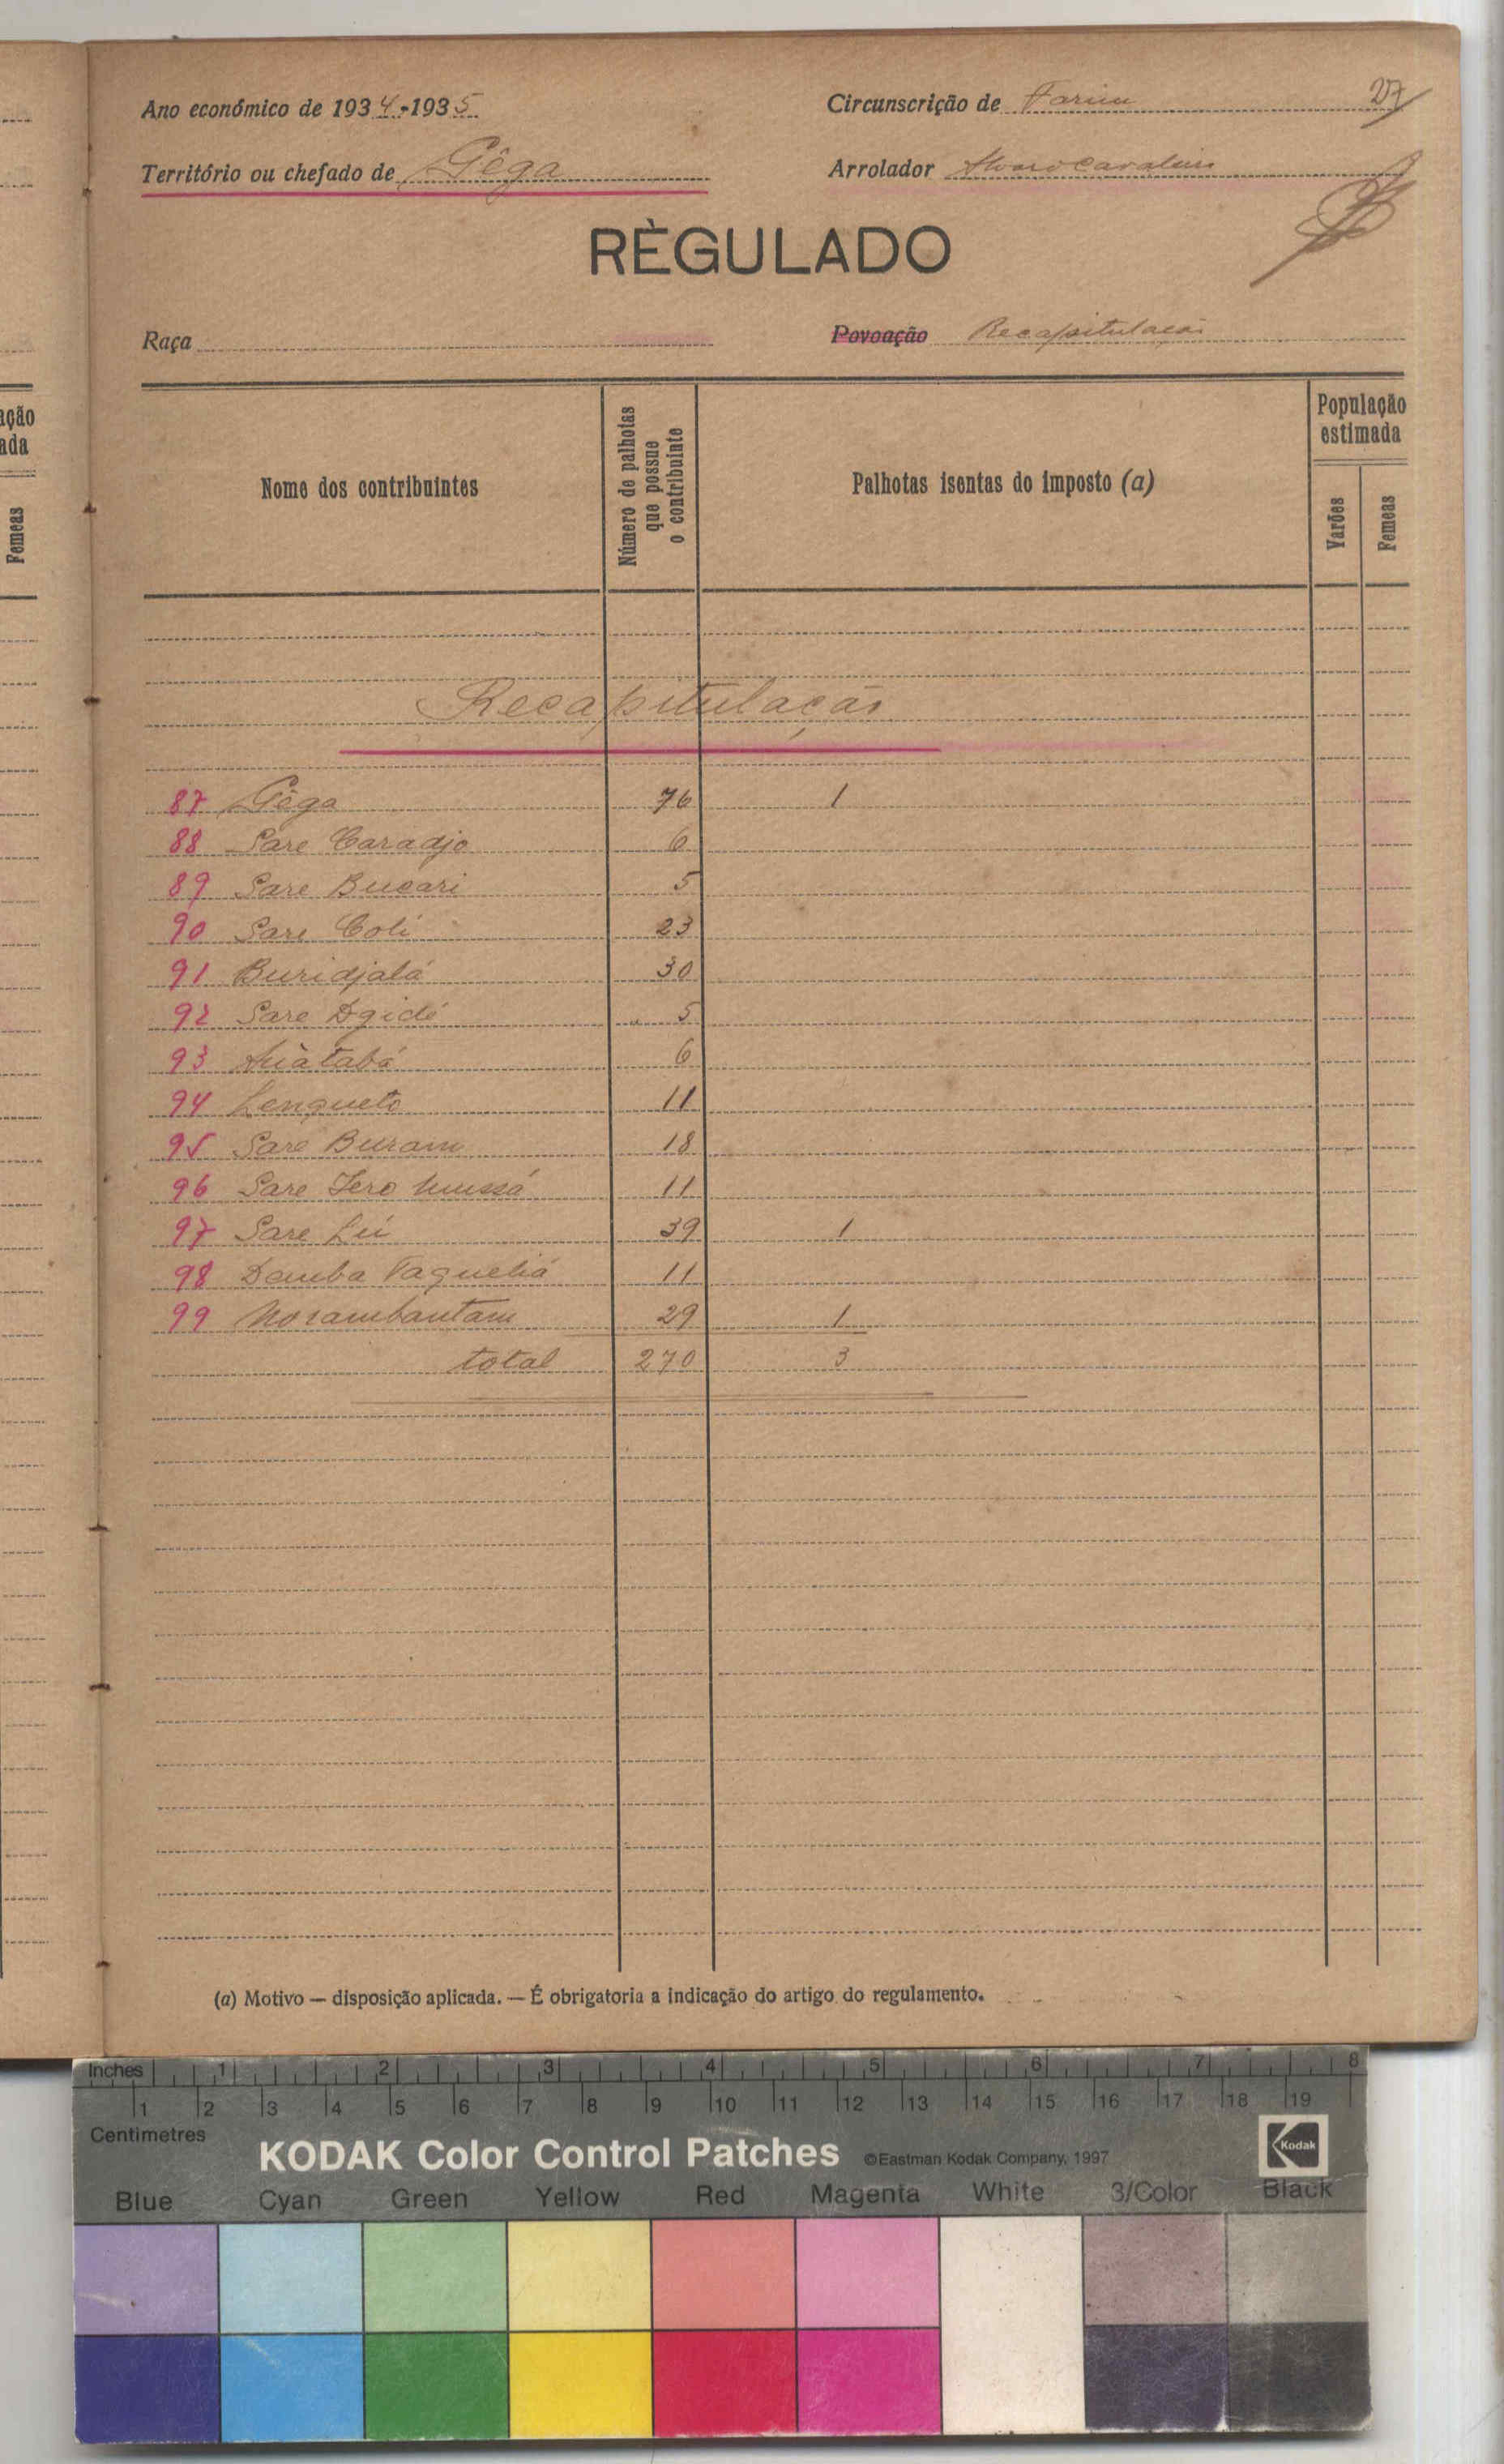 Ano económico de 1934-1935
Circunscrição de Farim
27
Território ou chefado de Gêga
Arrolador Alvaro Cavaleiro
RÈGULADO
Raça
Povoação Recapitulação
Nome dos contribuintes
Número de palhotas que possue o contribuinte
Palhotas isentas do imposto (a)
População estimada
Varões
Femeas
Recapitulação
87 Gêga 76 1
88 Sare Caradjo 6
89 Sare Bucari 5
90 Sare Coli 23
91 Buridjalá 30
92 Sare Dgidé 5
93 6
94 Lenqueto 11
95 Sare Buram 18
96 Sare Iero Mussá 11
97 Sare Lúi 39 1
98 Demba 11
99 Norambantam 29 1
total 270 3
(a) Motivo — disposição aplicada. — É obrigatoria a indicação do artigo do regulamento.
ação
ada
Femeas
Inches 1 2 3 4 5 6 7 8
1 2 3 4 5 6 7 8 9 10 11 12 13 14 15 16 17 18 19
Centimetres
KODAK Color Control Patches ©Eastman Kodak Company, 1997
Kodak
Blue Cyan Green Yellow Red Magenta White 3/Color Black